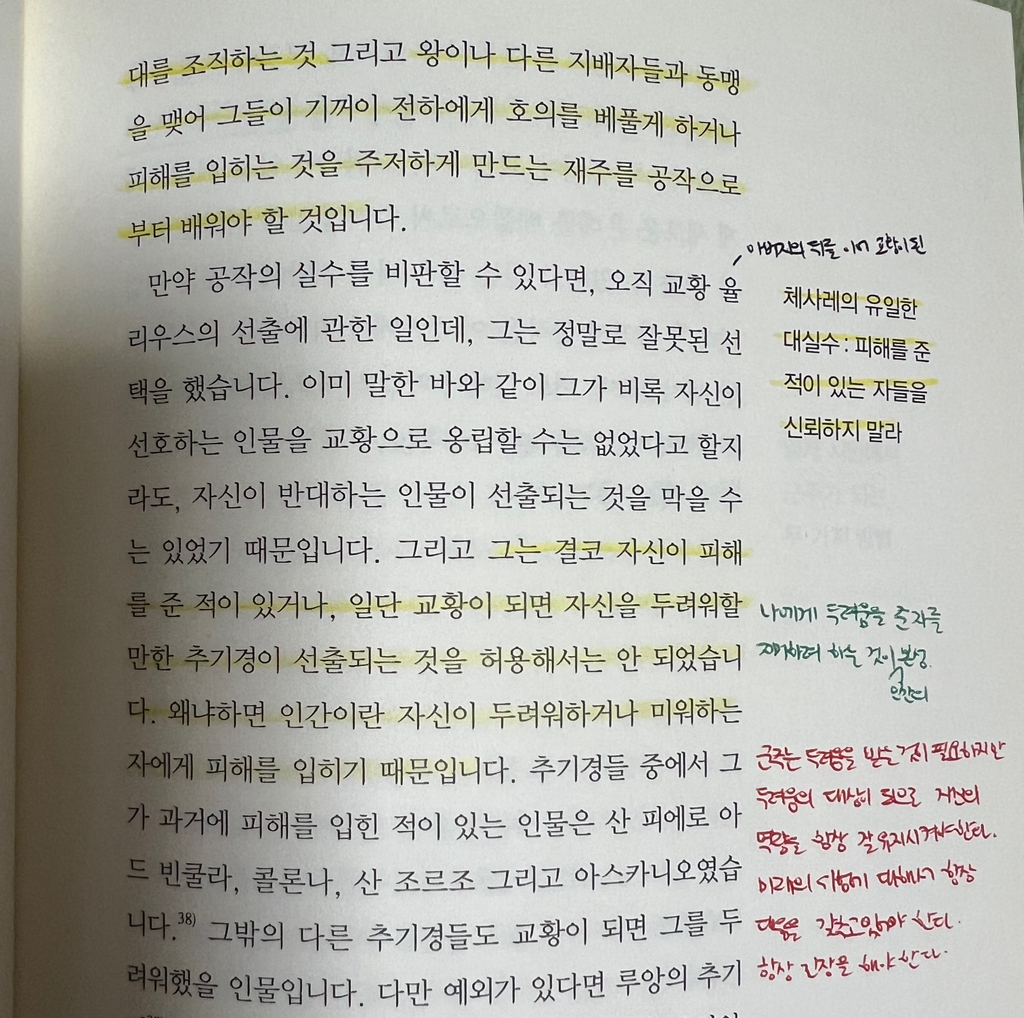 대를 조직하는 것 그리고 왕이나 다른 지배자들과 동맹
을 맺어 그들이 기꺼이 전하에게 호의를 베풀게 하거나
피해를 입히는 것을 주저하게 만드는 재주를 공작으로
부터 배워야 할 것입니다.
만약 공작의 실수를 비판할 수 있다면, 오직 교황 율
리우스의 선출에 관한 일인데, 그는 정말로 잘못된 선
택을 했습니다. 이미 말한 바와 같이 그가 비록 자신이
선호하는 인물을 교황으로 옹립할 수는 없었다고 할지
라도, 자신이 반대하는 인물이 선출되는 것을 막을 수
는 있었기 때문입니다. 그리고 그는 결코 자신이 피해
를 준 적이 있거나, 일단 교황이 되면 자신을 두려워할
만한 추기경이 선출되는 것을 허용해서는 안 되었습니
다. 왜냐하면 인간이란 자신이 두려워하거나 미워하는
자에게 피해를 입히기 때문입니다. 추기경들 중에서 그
가 과거에 피해를 입힌 적이 있는 인물은 산 피에로 아
드 빈쿨라, 콜론나, 산 조르조 그리고 아스카니오였습
니다.38) 그밖의 다른 추기경들도 교황이 되면 그를 두
려워했을 인물입니다. 다만 예외가 있다면 루앙의 추기
아버지의 뒤를 이어 교황이 된
체사레의 유일한
대실수 : 피해를 준
적이 있는 자들을
신뢰하지 말라
나에게 두려움을 준 자를
제거하려 하는 것이 본성.
인간의
군주는 두려움을 받는 것이 필요하지만
두려움의 대상이 되므로 자신의
역량을 항상 잘 유지시켜야한다.
미래의 시험에 대해서 항상
대응을 갖추고 있어야 한다.
항상 긴장을 해야 한다.